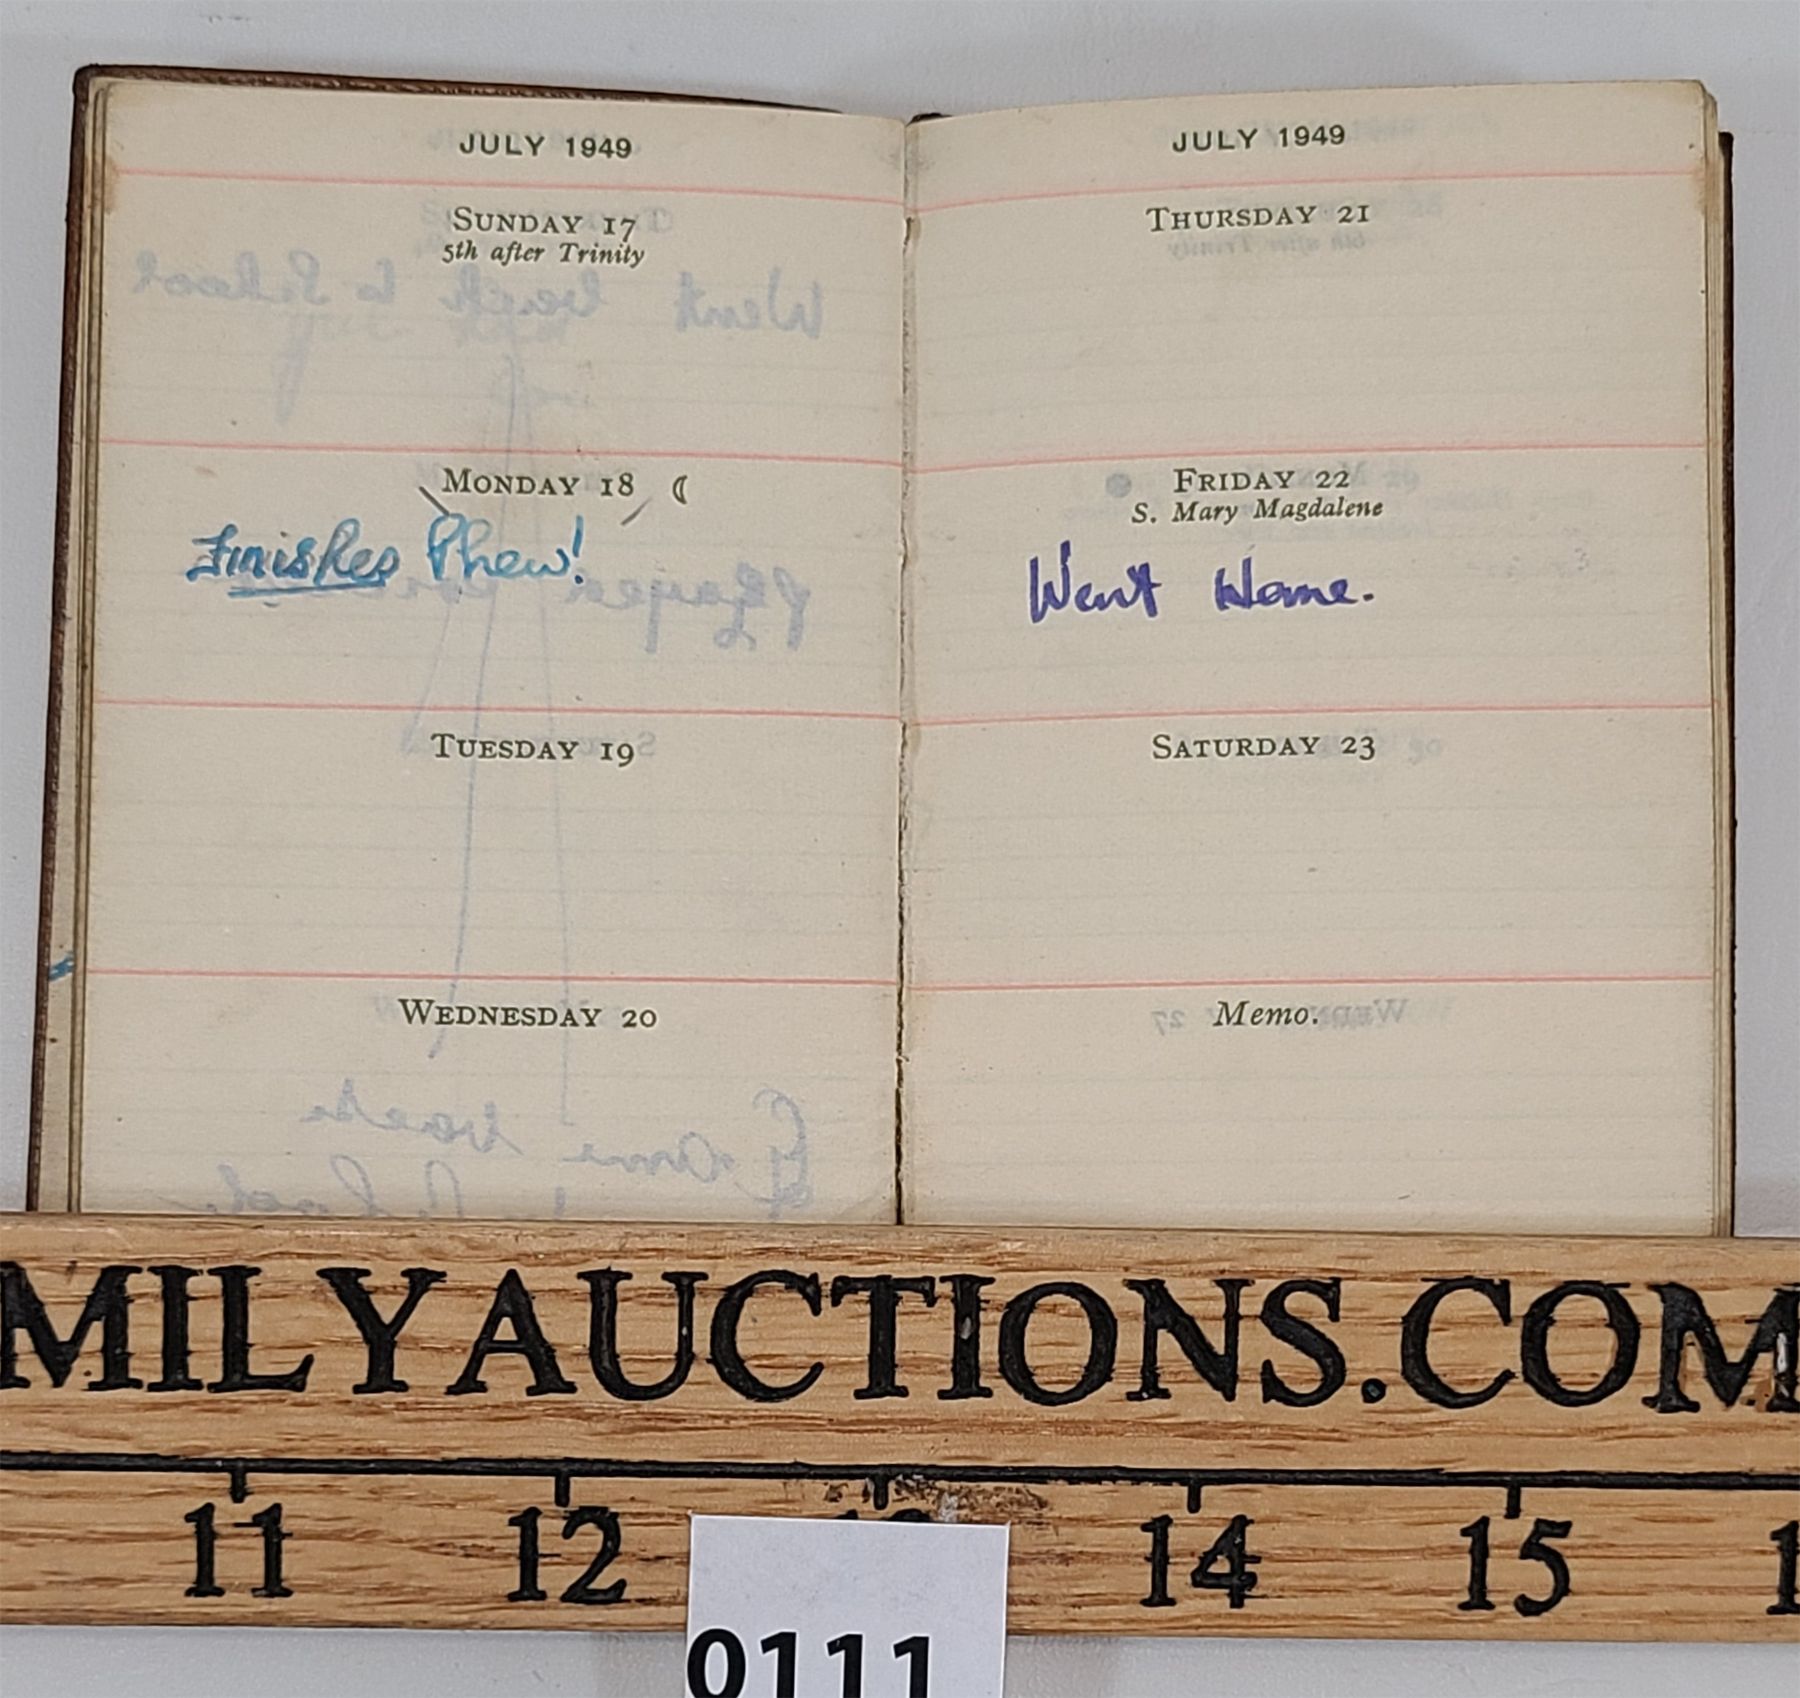 JULY 1949
SUNDAY 17
5th after Trinity
Went back to School
MONDAY 18
Finishes Phew!
TUESDAY 19
WEDNESDAY 20
back
JULY 1949
THURSDAY 21
FRIDAY 22
S. Mary Magdalene
Went Home.
SATURDAY 23
Memo.
MILYAUCTIONS.COM
11 12 14 15
0111